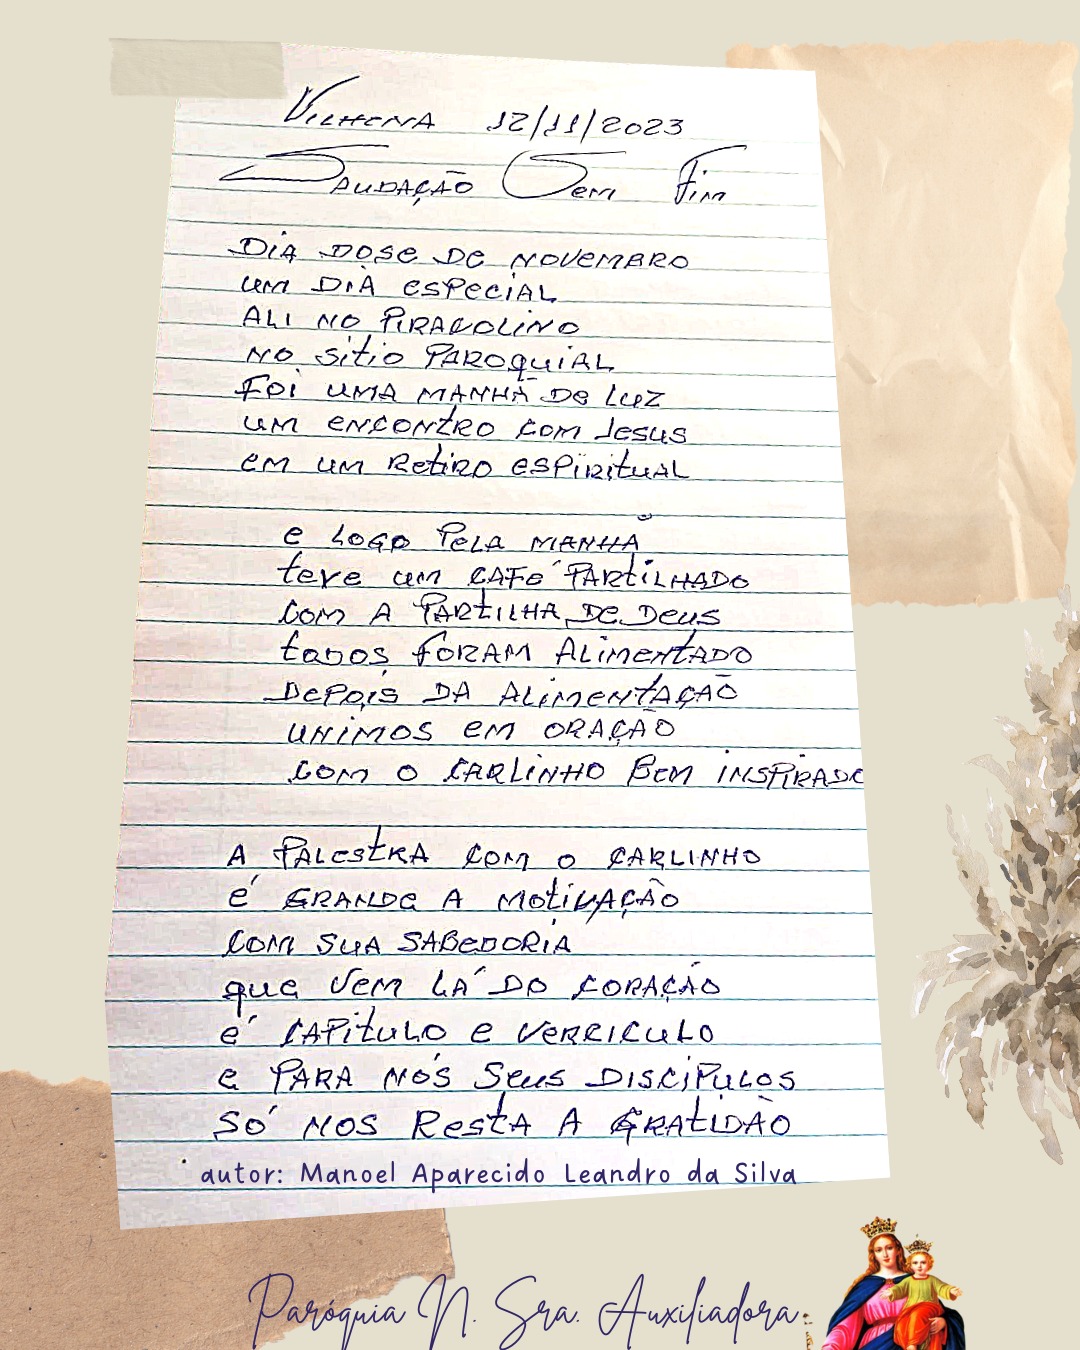 Vilhena 12/11/2023
Saudação Sem Fim
Dia dose de novembro
um dia especial
ali no Piracolino
no sitio Paroquial
Foi uma manhã de luz
um encontro com Jesus
em um Retiro espiritual
e logo pela manhã
teve um café partilhado
com a partilha de Deus
todos foram alimentado
Depois da alimentação
unimos em oração
com o Carlinho bem inspirado
A palestra com o Carlinho
é grande a motivação
com sua sabedoria
que vem lá do coração
é capitulo e verriculo
e para nós seus discipulos
só nos resta a gratidão
autor: Manoel Aparecido Leandro da Silva
Paróquia N. Sra. Auxiliadora